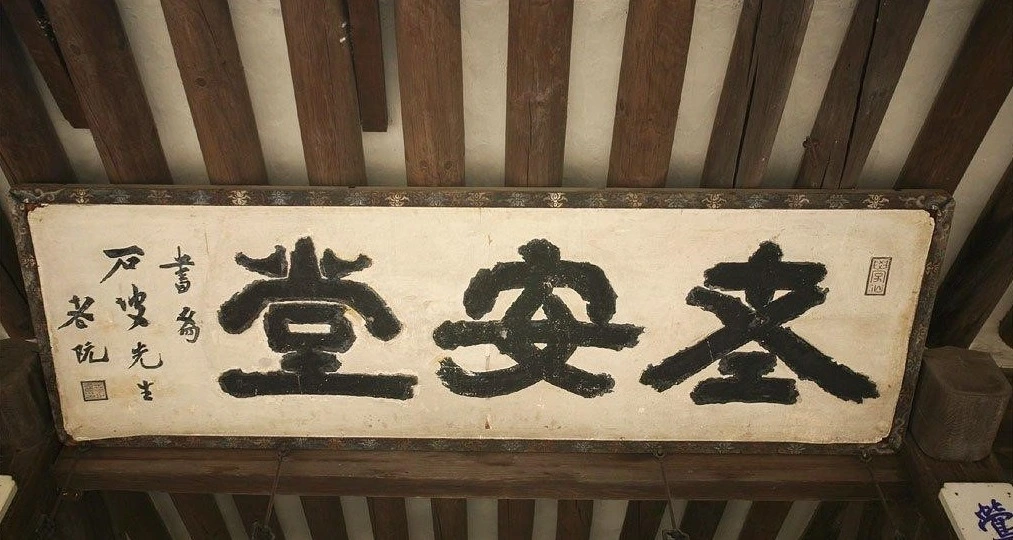 老安堂
書為
石坡先生
老阮